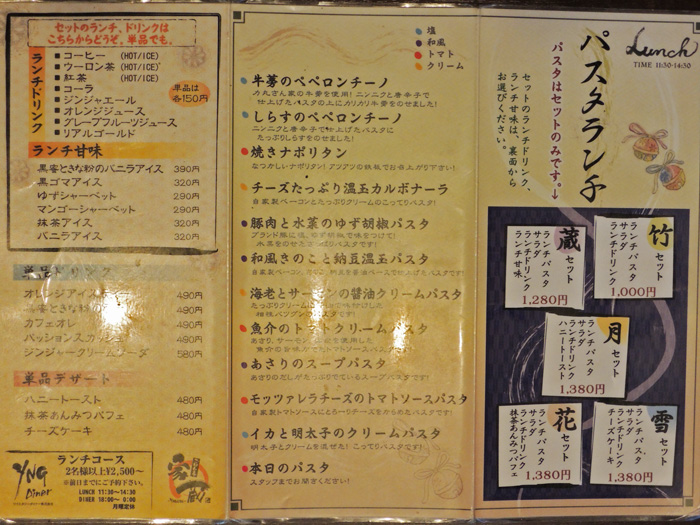 セットのランチ、ドリンクは
こちらからどうぞ。単品でも。
ランチドリンク
■コーヒー (HOT/ICE)
■ウーロン茶 (HOT/ICE)
■紅茶 (HOT/ICE)
■コーラ
■ジンジャエール
■オレンジジュース
■グレープフルーツジュース
■リアルゴールド
単品は
各150円
ランチ甘味
黒蜜ときな粉のバニラアイス 390円
黒ゴマアイス 320円
ゆずシャーベット 290円
マンゴーシャーベット 290円
抹茶アイス 320円
バニラアイス 320円
単品ドリンク
490円
490円
カフェオレ 490円
パッションスカッシュ 490円
ジンジャークリームソーダ 580円
単品デザート
ハニートースト 480円
抹茶あんみつパフェ 480円
チーズケーキ 480円
YNG
Diner
ランチコース
2名様以上¥2,500〜
※前日までにご予約下さい。
LUNCH 11:30〜14:30
DINER 18:00〜 0:00
月曜定休
●塩
●和風
●トマト
●クリーム
●牛蒡のペペロンチーノ
●しらすのペペロンチーノ
ニンニクと唐辛子で仕上げたパスタに
たっぷりしらすをのせました!
●焼きナポリタン
なつかしいナポリタン!アツアツの鉄板でお召上がり下さい!
●チーズたっぷり温玉カルボナーラ
自家製ベーコンとたまごたっぷりのこってりクリームです!
●豚肉と水菜のゆず胡椒パスタ
●和風きのこと納豆温玉パスタ
●海老とサーモンの醤油クリームパスタ
●魚介のトマトクリームパスタ
●あさりのスープパスタ
あさりのだしがたっぷりでているスープパスタです!
●モッツァレラチーズのトマトソースパスタ
自家製トマトソースにとろ〜りチーズをからめたパスタです!
●イカと明太子のクリームパスタ
明太子とクリームを混ぜた!こってりパスタです!
●本日のパスタ
スタッフまでお聞きください!
Lunch
TIME 11:30-14:30
パスタランチ
パスタはセットのみです。↓
セットのランチドリンク、
ランチ甘味は、裏面から
お選びください。
竹セット
ランチパスタ
サラダ
ランチドリンク
1,000円
蔵セット
ランチパスタ
サラダ
ランチドリンク
ランチ甘味
1,280円
月セット
ランチパスタ
サラダ
ランチドリンク
ハニートースト
1,380円
雪セット
ランチパスタ
サラダ
ランチドリンク
チーズケーキ
1,380円
花セット
ランチパスタ
サラダ
ランチドリンク
抹茶あんみつパフェ
1,380円